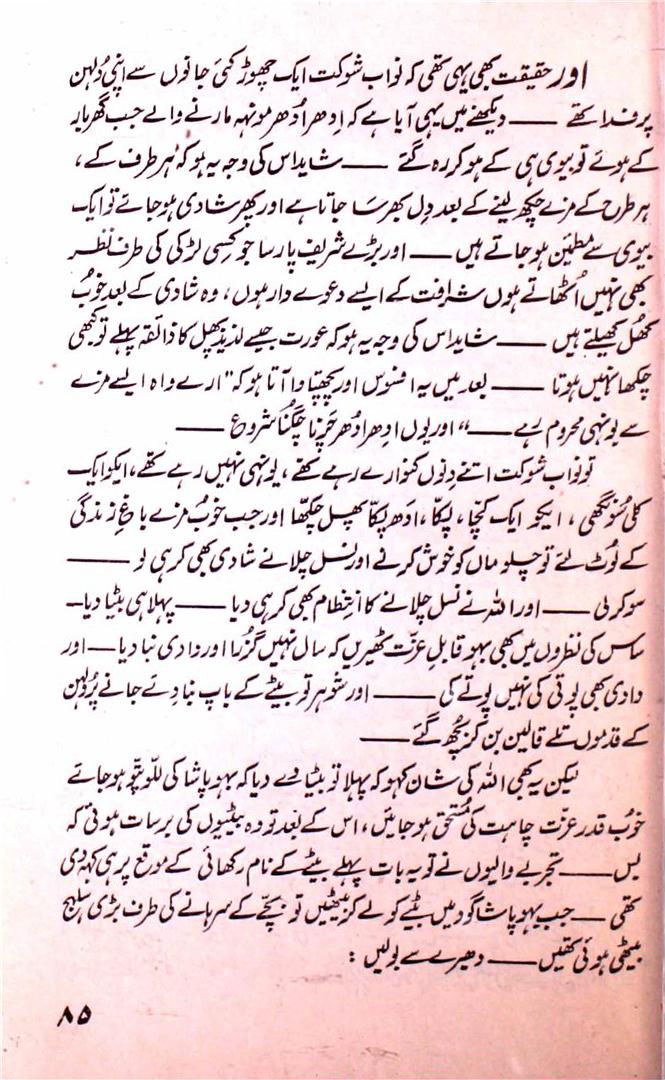 اور حقیقت بھی یہی تھی کہ نواب شوکت ایک چھوڑ کئی جانوں سے اپنی دُلہن
پر فدا تھے —— دیکھنے میں یہی آیا ہے کہ اِدھر اُدھر مونہہ مارنے والے جب گھر بار
کے ہوئے تو بیوی ہی کے ہو کر رہ گئے —— شاید اس کی وجہ یہ ہو کہ ہر طرف کے ،
ہر طرح کے مزے چکھ لینے کے بعد دِل بھر سَا جاتا ہے اور پھر شادی ہو جائے تو ایک
بیوی سے مطمئین ہو جاتے ہیں —— اور بڑے شریف پارسا جو کِسی لڑکی کی طرف نظر
بھی نہیں اُٹھاتے ہوں شرافت کے ایسے دعوے دار ہوں ، وہ شادی کے بعد خوُب
کھُل کھیلتے ہیں —— شاید اس کی وجہ یہ ہو کہ عورت جیسے لذیذ پھل کا ذائقہ پہلے تو کبھی
چکھا نہیں ہوتا —— بعد میں یہ افسوس اور پچھتاوا آتا ہو کہ "ارے واہ ایسے مزے
سے یونہی محروم رہے ——" اور یوں اِدھر اُدھر چَرنا چُگنا شروع ——
تو نواب شوکت اتنے دِنوں کنوارے رہے تھے ، یونہی نہیں رہے تھے ، ایکو ایک
کلی سُونگھی ، ایکو ایک کچّا ، پکّا ، ادَھ پکّا پھل چکھّا اور جب خوُب مزے باغِ زندگی
کے لُوٹ لئے تو چلو ماں کو خوش کرنے اور نسل چلانے شادی بھی کر ہی لو ——
سو کر لی —— اور اللہ نے نسل چلانے کا اِنتظام بھی کر ہی دیا —— پہلا ہی بیٹا دیا—
ساس کی نظروں میں بھی بہو قابلِ عزّت ٹھیریں کہ سال نہیں گزُرا اور دادی بنا دیا — اور
دادی بھی پوتی کی نہیں پوتے کی —— اور شوہر تو بیٹے کے باپ بنا دئے جانے پر دُلہن
کے قدموں تلے قالین بن کر بِچُھ گئے ——
لیکن یہ بھی اللہ کی شان کہو کہ پہلا تو بیٹا دے دیا کہ بہو پاشا کی للّو پتّو ہو جائے
خوُب قدر عزّت چاہت کی مُستحق ہو جائیں ، اس کے بعد تو وہ بیٹیوں کی برسات ہوئی کہ
بس —— تجربے والیوں نے تو یہ بات پہلے بیٹے کے نام رکھائی کے موقع پر ہی کہہ دی
تھی — جب بہو پاشا گود میں بیٹے کو لے کر بیٹھیں تو بچّے کے سرہانے کی طرف بڑی
بیٹھی ہوئی تھیں —— دھیرے سے بولیں :
۸۵